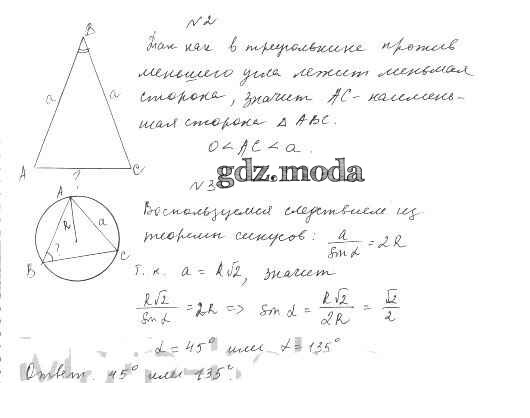 N2
Так как в треугольнике против
меньшего угла лежит меньшая
сторона, значит AC - наимень-
шая сторона Δ ABC.
0 < AC < a.
B
a a
A ? C
gdz.moda
N3
Воспользуемся следствием из
теоремы синусов: a/sin α = 2R
т. к. a = R√2, значит
R√2/sin α = 2R => sin α = R√2/2R = √2/2
α = 45° или α = 135°
Ответ. 45° или 135°.
A
R a
B ? C